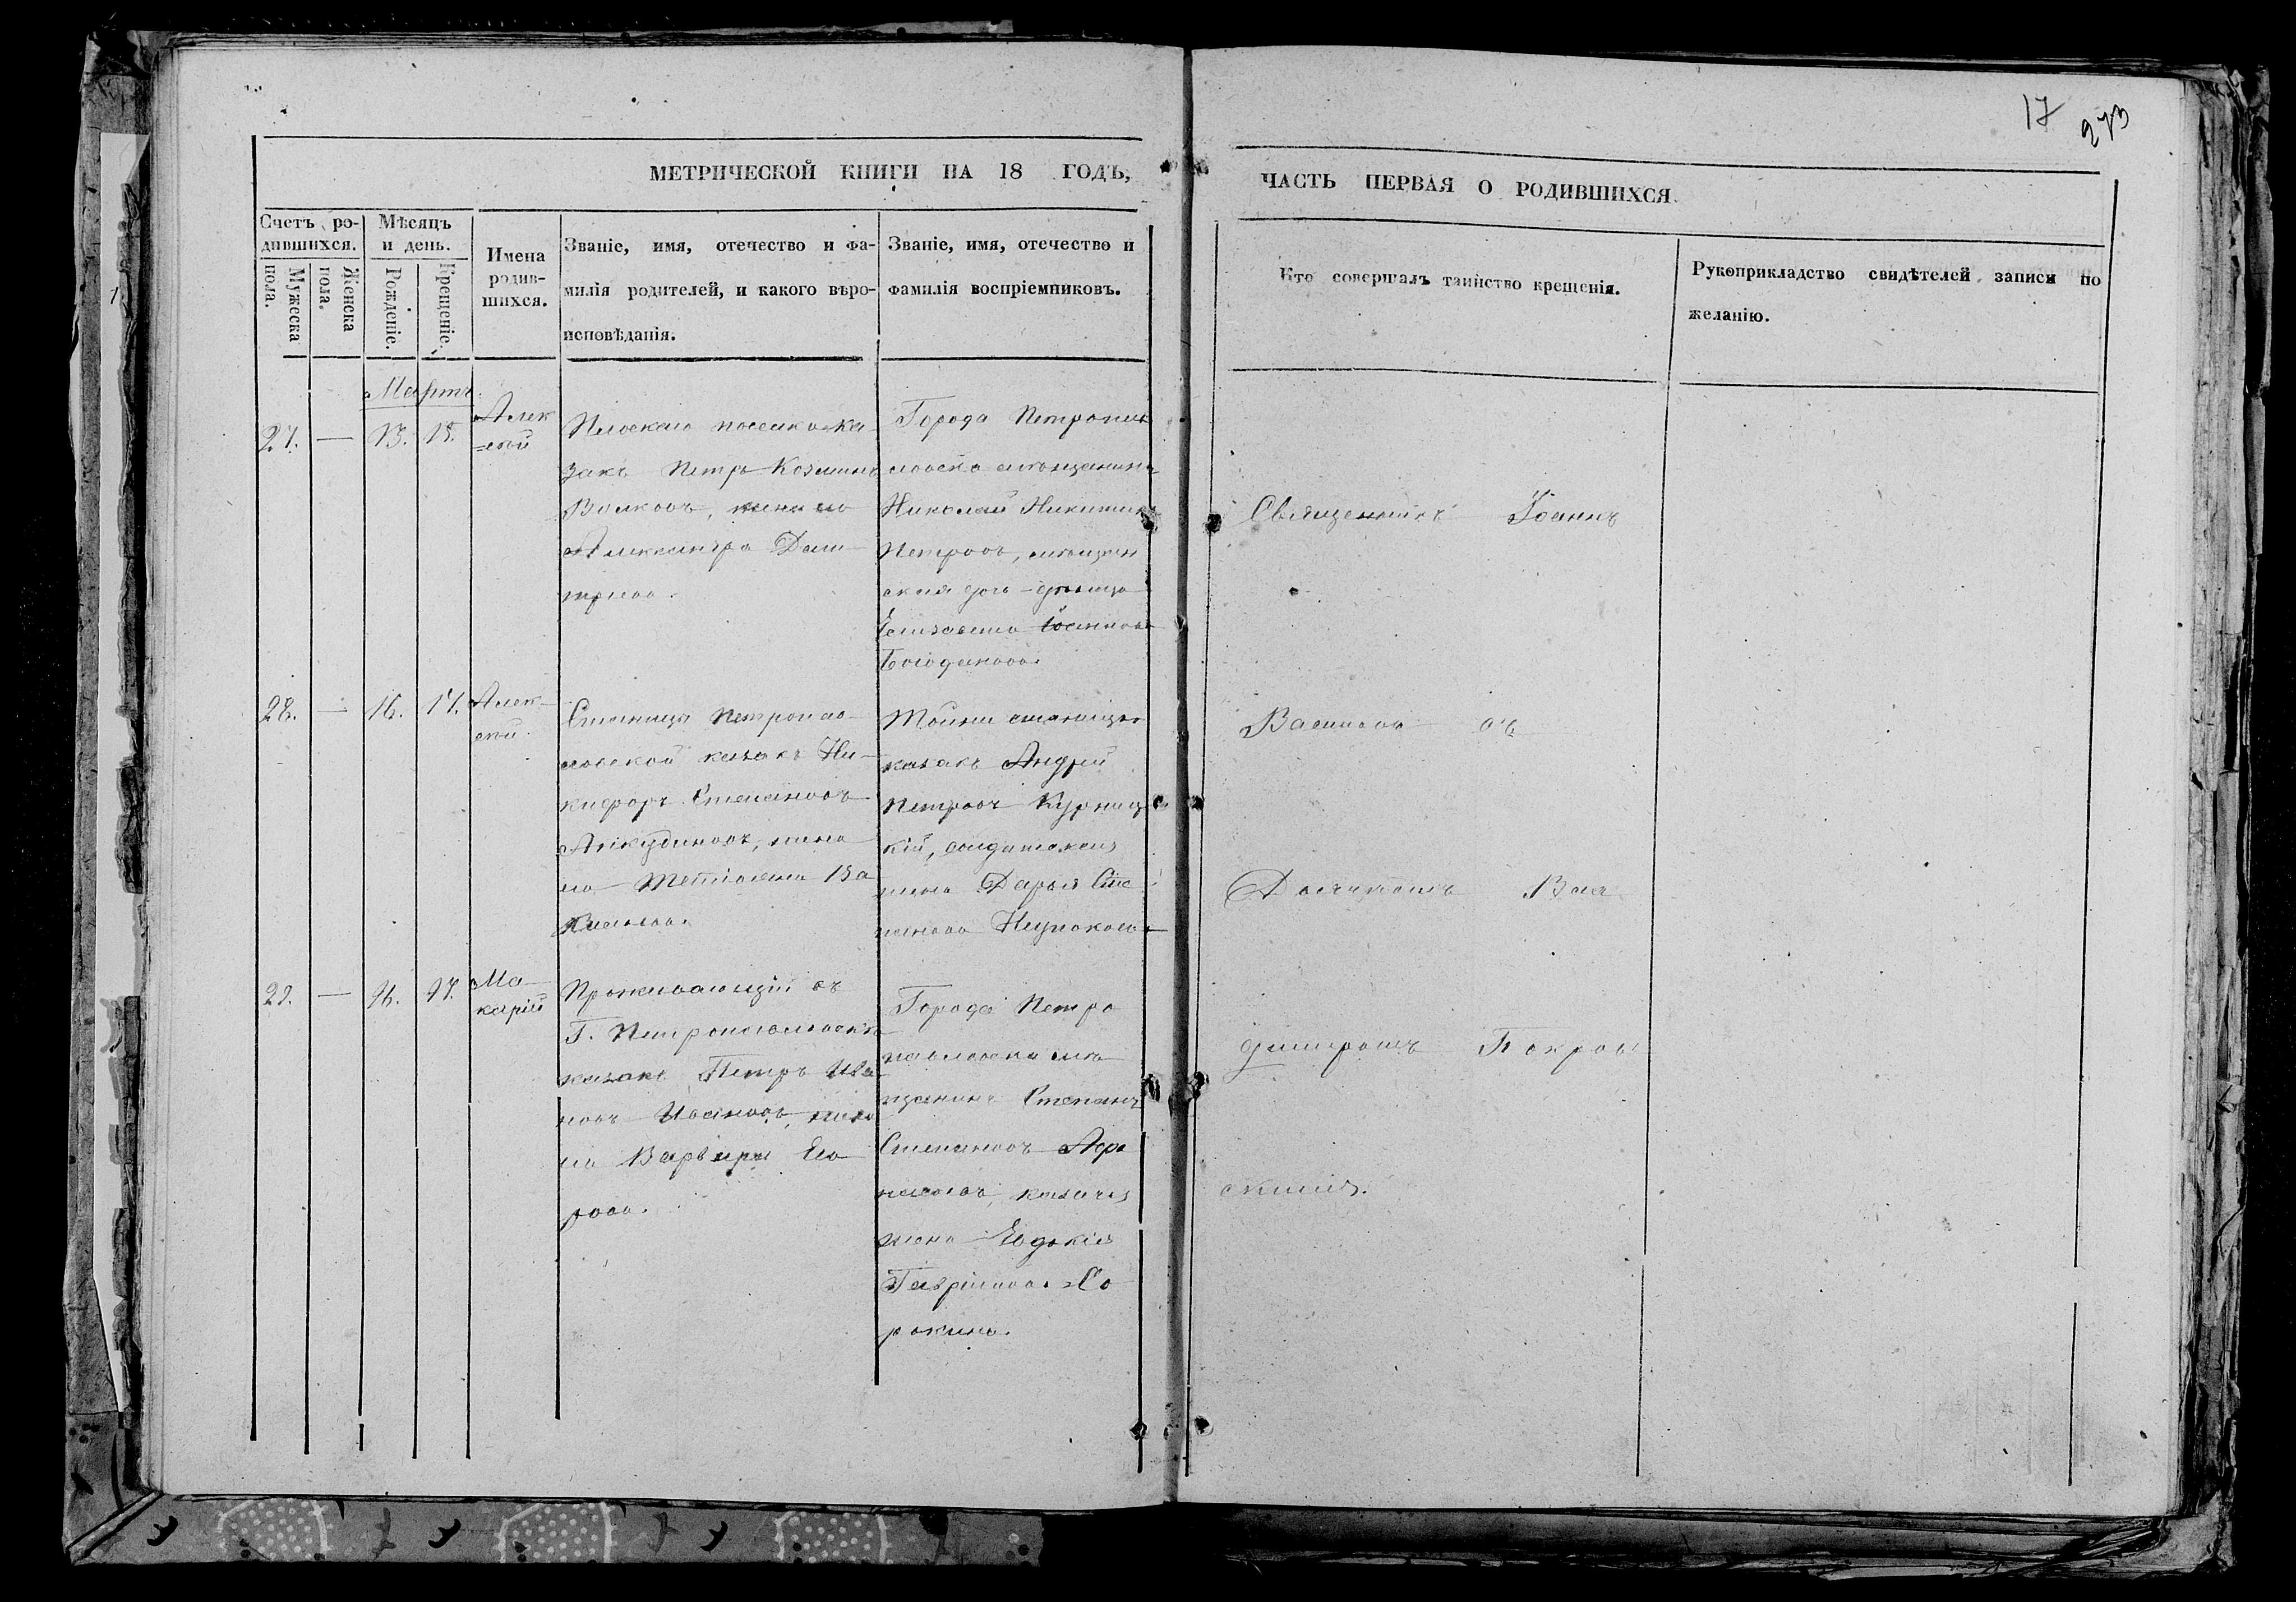 17
273
МЕТРИЧЕСКОЙ КНИГИ НА 18 ГОДЪ,
ЧАСТЬ ПЕРВАЯ О РОДИВШИХСЯ
Счетъ ро-
дившихся.
Мужеска
пола.
Женска
пола.
Мѣсяцъ
и день.
Рожденіе.
Крещеніе.
Имена
родив-
шихся.
Званіе, имя, отечество и фа-
милія родителей, и какого вѣро-
исповѣданія.
Званіе, имя, отечество и
фамилія воспріемниковъ.
Кто совершалъ таинство крещенія.
Рукоприкладство свидѣтелей записи по
желанію.
Мартъ
27. — 13. 15.
Алек
=сѣй
поселка ка
закъ Петръ Козминъ
Волковъ, жена его
Александра Дми
тріева.
Города Петропав
ловска мѣщанинъ
Николай Никитинъ
Петровъ, мѣщан
ская дочь – дѣвица
Елизавета Іоаннова
Богданова.
28. — 16. 17.
Алек-
сѣй.
Станицы Петропав
ловской казакъ Ни-
кифоръ Степановъ
Анкудиновъ, жена
его
Тойже станицы
казакъ Андрей
Петровъ Курниц
кій, солдатская
жена Дарья Сте
панова
29. — 16. 17.
Ма-
карій
Проживающій въ
Г. Петропавловскѣ
казакъ Петръ Ива
новъ Ивановъ, жена
его Варвара Его
рова.
Города Петро
павловска мѣ
щанинъ Степанъ
Степановъ Афа
насьевъ, казачья
жена Евдокія
Гаврилова Со
рокина.
Священникъ Іоаннъ
Васильевъ
Дьячкомъ
Димитріемъ Покров
скимъ.